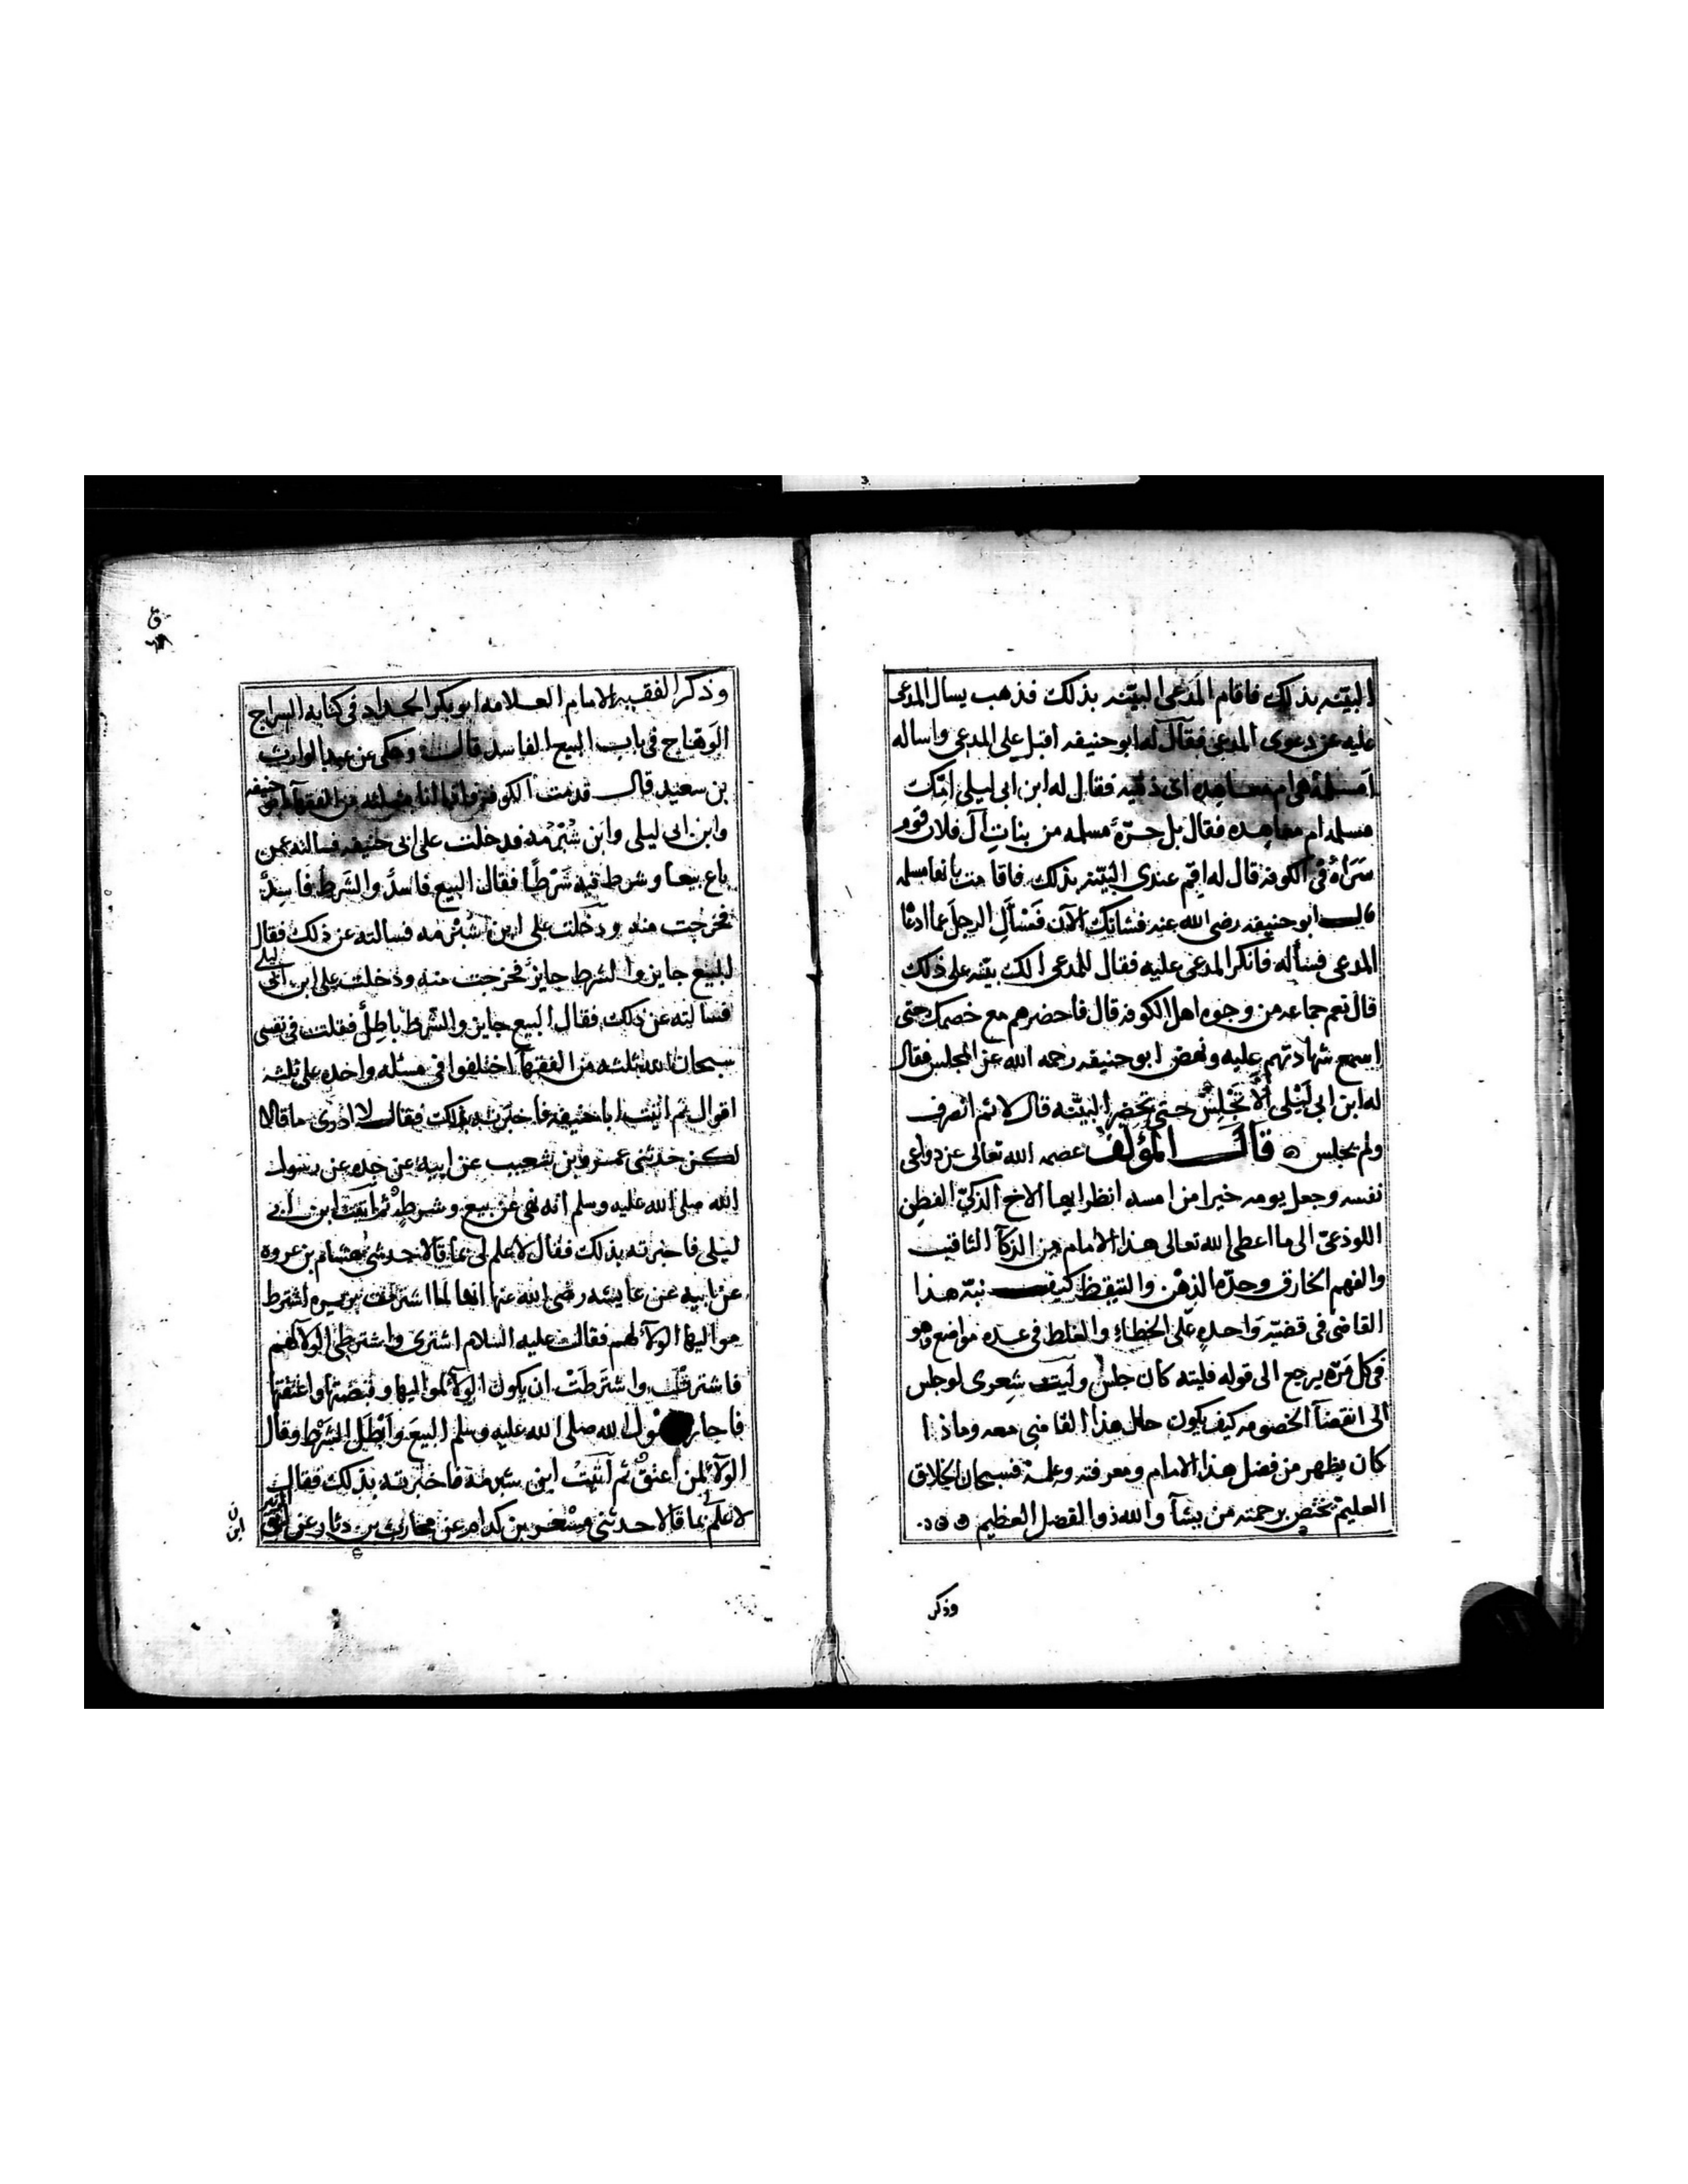 البينه بذلك فاقام المدعى البينه بذلك فذهب يسال المدعى
عليه عن دعوى المدعى فقال له ابو حنيفه اقبل على المدعى واساله
امسلمة هى ام معاهده اى ذميه فقال له ابن ابى ليلى امك
مسلمه ام معاهده فقال بل حرّة مسلمه من بنات آل فلان قوم
سَرَاةٌ فى الكوفه قال له اقم عندى البينه بذلك فاقامت بانها مسلمه
قال ابو حنيفه رضى الله عنه فشانك الآن فَسْأَلِ الرجلَ عما ادعا
المدعى فسأله فانكر المدعى عليه فقال للمدعى الك بينه على ذلك
قال نعم جماعه من وجوه اهل الكوفه قال فاحضرهم مع خصمك حتى
اسمع شهادتهم عليه ونهض ابو حنيفه رحمه الله عن المجلس فقال
له ابن ابى لَيْلى أَلَا تَجْلِسُ حتى تحضِر البينه قال لا ثم انصرف
ولم يجلس ۞ قالَ المُؤلف عصمه الله تعالى عن دواعى
نفسه وجعل يومه خيرا من امسه انظر ايها الاخ الذكىّ الفطِن
اللوذعىّ الى ما اعطى الله تعالى هذا الامام من الذكآ الثاقب
والفهم الخارق وحدّه الذِهْن والتيقظ كيف نبّه هذا
القاضى فى قضيّه وَاحدهٍ عَلى الخطاءِ والغلط فى عده مواضع وهو
فى كل مَرّه يرجع الى قوله فليته كان جلس ولَيتَ شِعرى لو جلس
الى انقضآ الخصومه كيف يكون حال هذا القاضى معه وماذا
كان يظهر من فضل هذا الامام ومعرفته وعلمه فسبحان الخلاق
العليم يختص برحمته من يشآ والله ذو الفضل العظيم
وذكر
وذكر الفقيه الامام العلامه ابو بكر الحداد فى كتابه السراج
الوَهّاج فى باب البيع الفاسد قال وحكى عن عبد الوارث
بن سعيد قال قدمت الكوفه من الفقهآ ابو حنيفه
وابن ابى ليلى وابن شُبْرُمه فدخلت على ابى حنيفه فسالته عمن
باع بيعا وشرط فيه شَرْطًا فقال البيع فاسدٌ والشَرط فَاسِدٌ
فخرجت منه ودَخلت على ابن شُبْرمه فسالته عن ذلك فقال
البيع جايز والشرط جايز فخرجت منه ودخلت على ابن ابى ليلى
فسالته عن ذلك فقال البيع جايز والشرط باطِلٌ فقلت فى نفسى
سبحان الله ثلثه من الفقهآ اختلفوا فى مسئله واحده على ثلثه
اقوال ثم اتيت ابا حنيفه فاخبرته بذلك فقال لا ادرى ما قالا
لكن حدثنى عمرو بن شعيب عن ابيه عن جده عن رسول
الله صلى الله عليه وسلم انه نهى عن بيع وشرطٍ ثم اتيت ابن ابى
ليلى فاخبرته بذلك فقال لا علم لى بما قالا حدثنى هشام بن عروه
عن ابيه عن عايشه رضى الله عنها انها لما اشترت بريره اشترط
مواليها الولآ لهم فقال عليه السلام اشترى واشترطى الولآ لهم
فاشترتْ واشتَرطَتْ ان يكون الولآ لمواليها وقبضتها واعتقتها
فاجاز رسول الله صلى الله عليه وسلم البيعَ وَابْطَلَ الشرْط وقال
الولآ لمن اَعتقَ ثم اَتَيْتُ ابن شبرمة فاخبرته بذلك فقال
لا علم لى بما قالا حدثنى مِسْعَر بن كدام عن محارب بن دثار عن